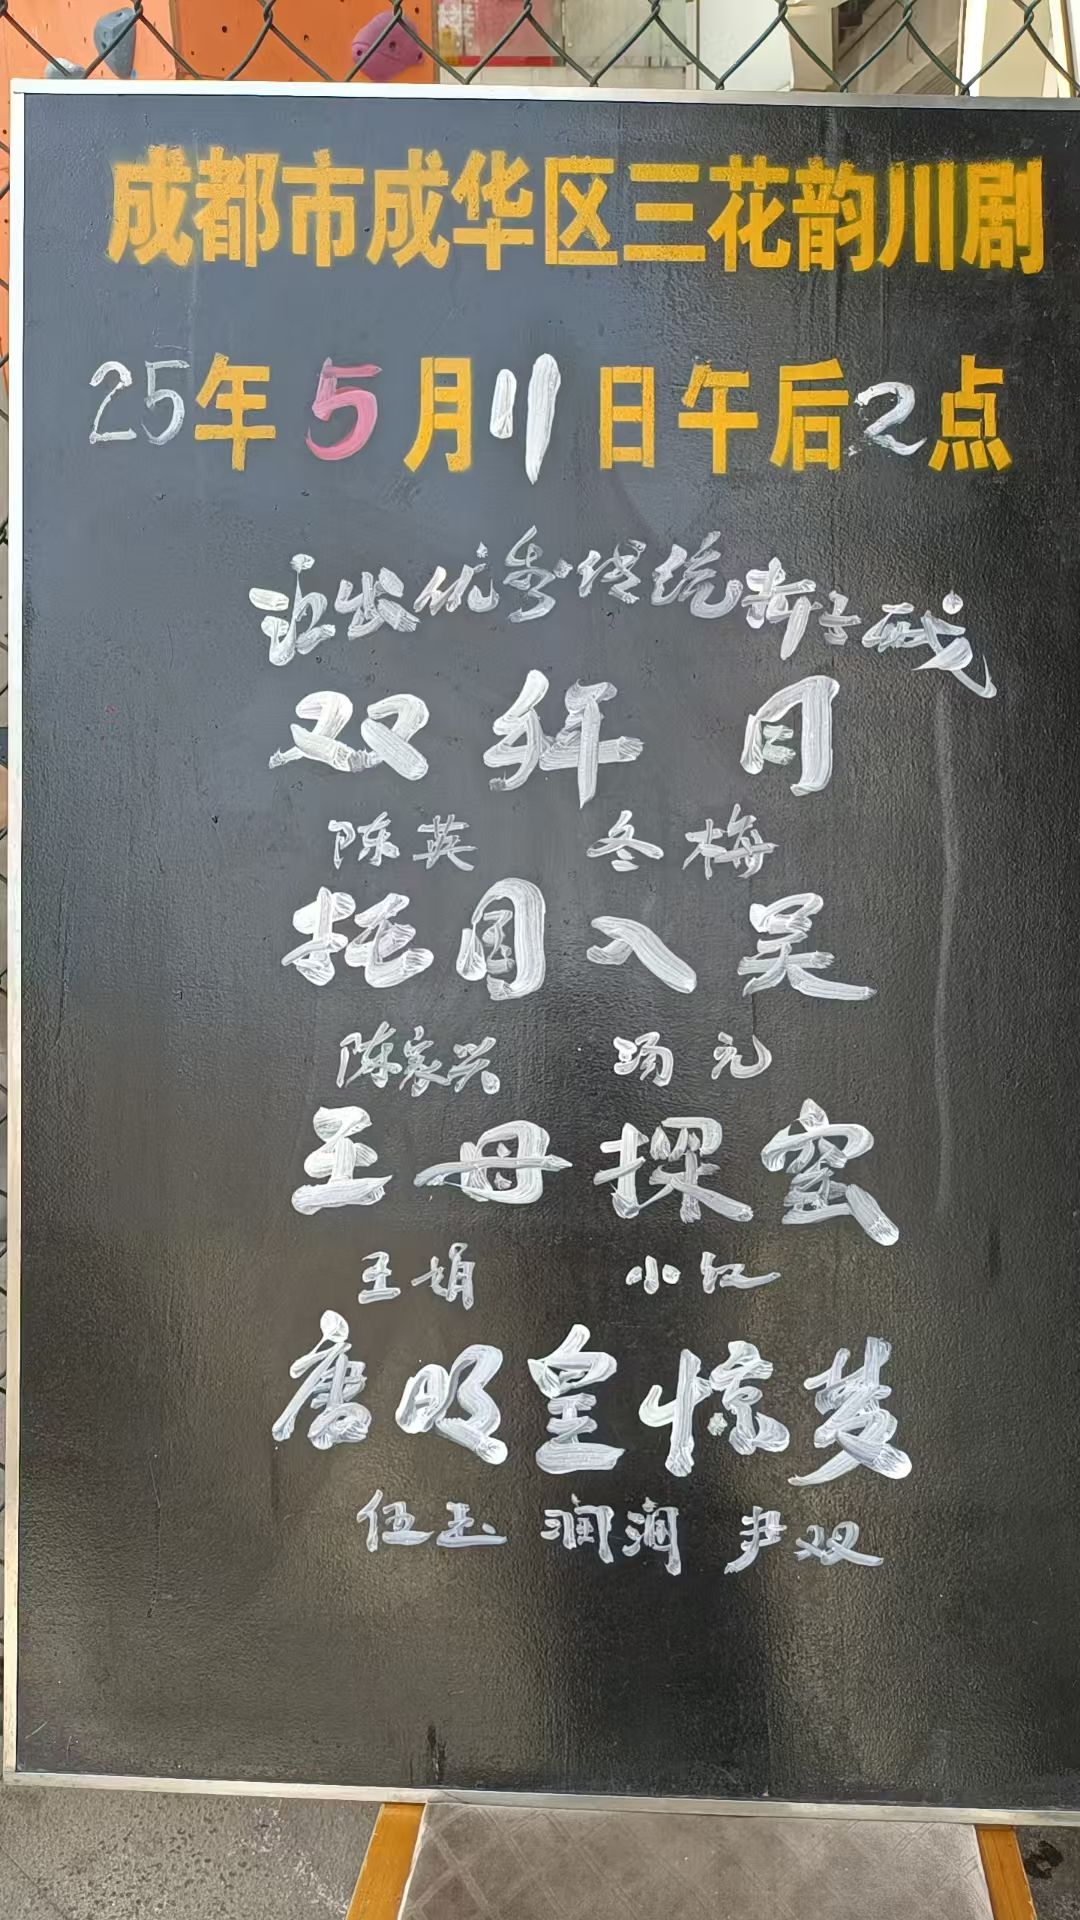 成都市成华区三花韵川剧
25年5月11日午后2点
演出优秀传统折子戏
双拜月
陈英 冬梅
托国入吴
陈家兴 汤元
王母探窑
王娟 小红
唐明皇惊梦
伍玉 润澜 尹双